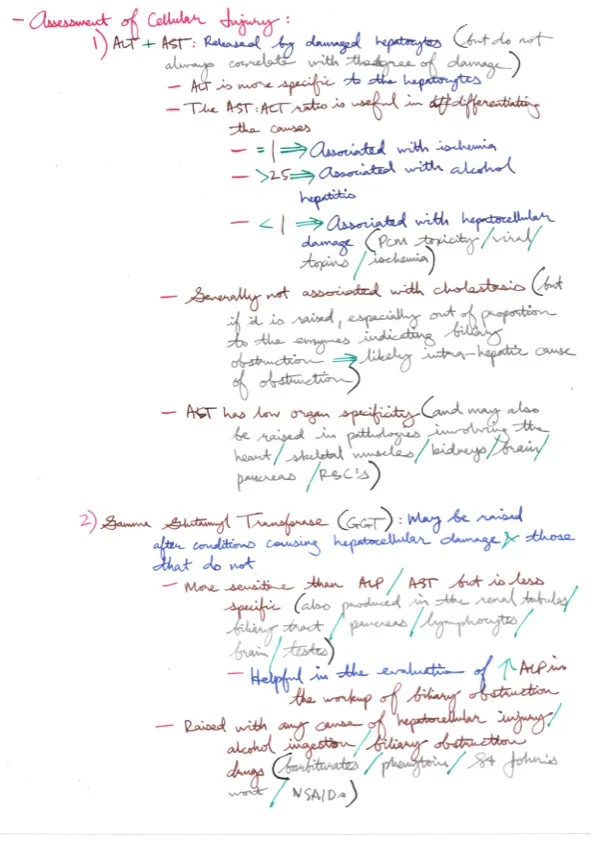 - Assessment of Cellular Injury:
1) ALT + AST: Released by damaged hepatocytes (but do not
always correlate with the degree of damage)
- ALT is more specific to the hepatocytes
- The AST:ALT ratio is useful in differentiating
the causes
- = 1 ⇒ Associated with ischemia
- >2.5 ⇒ Associated with alcohol
hepatitis
- < 1 ⇒ Associated with hepatocellular
damage (PCM toxicity/viral/
toxins/ischemia)
- Generally not associated with cholestasis (but
if it is raised, especially out of proportion
to the enzymes indicating biliary
obstruction ⇒ likely intra-hepatic cause
of obstruction)
- AST has low organ specificity (and may also
be raised in pathologies involving the
heart/skeletal muscles/kidneys/brain/
pancreas/RBC's)
2) Gamma Glutamyl Transferase (GGT): May be raised
after conditions causing hepatocellular damage & those
that do not
- More sensitive than ALP/AST but is less
specific (also produced in the renal tubules/
biliary tract/pancreas/lymphocytes/
brain/testes)
- Helpful in the evaluation of ↑ALP in
the workup of biliary obstruction
- Raised with any cause of hepatocellular injury/
alcohol ingestion/biliary obstruction
drugs (barbiturates/phenytoin/St John's
wort/NSAIDs)